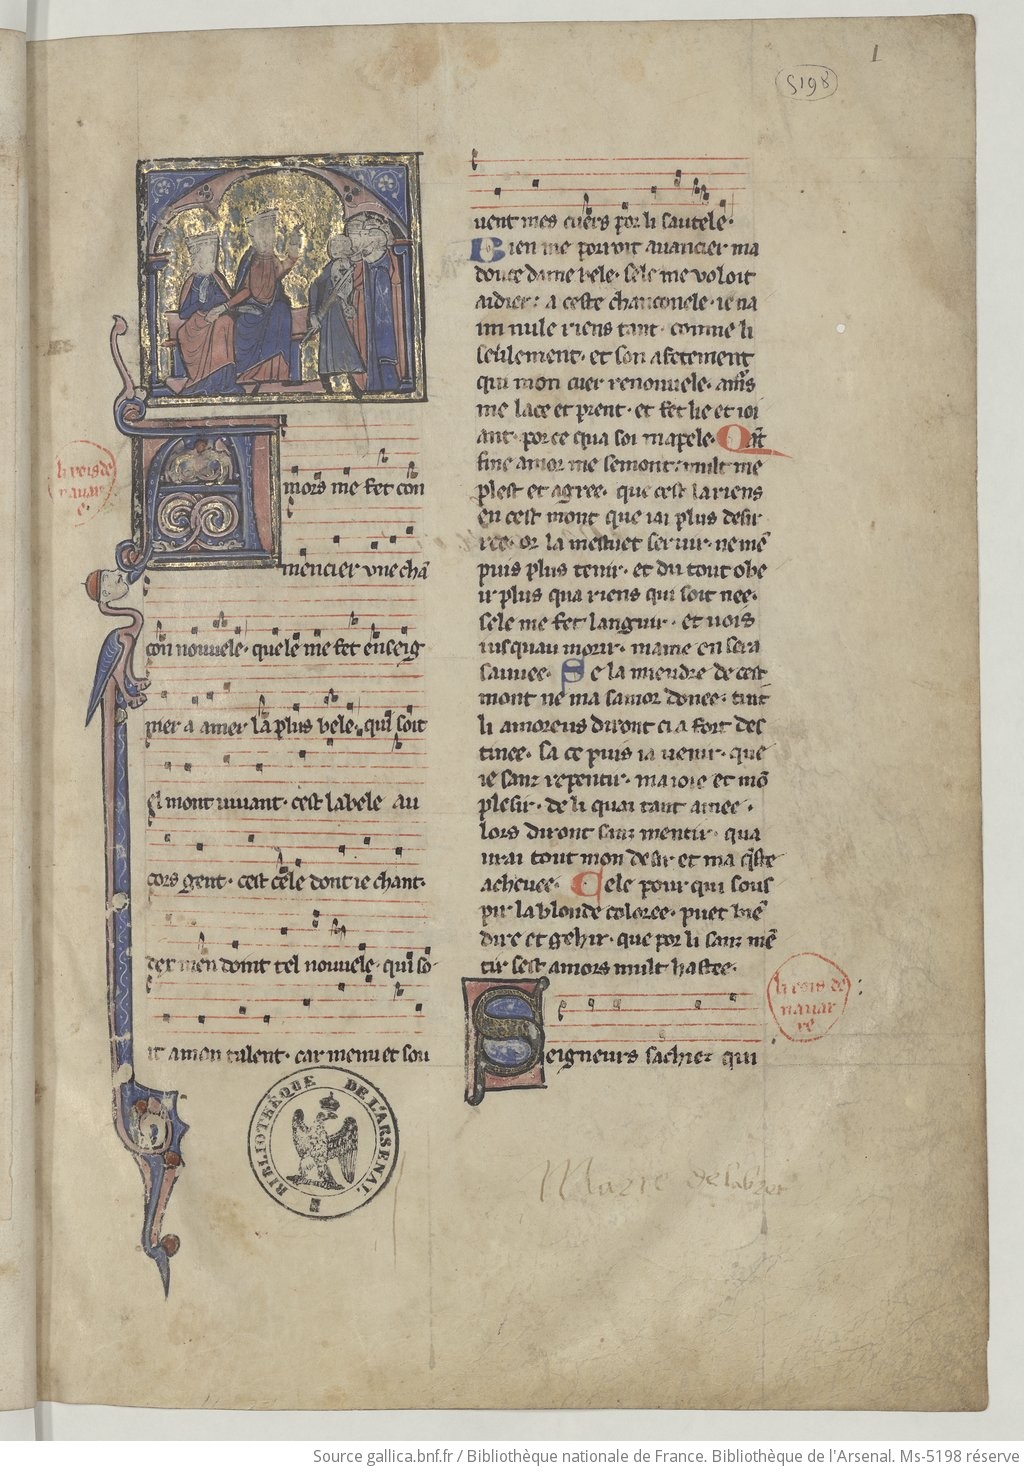 1
5198
li rois de
nauarr
e.
Amors me fet con
mencier vne chā
con nouuele. quele me fet enseig
nier a amer la plus bele. qui soit
el mont uiuant. cest la bele au
cors gent. cest cele dont ie chant.
dex men doint tel nouuele. qui so
it a mon talent. car menu et sou
uent mes cuers por li sautele.
Bien me porroit auancier ma
douce dame bele. sele me voloit
aidier: a ceste chanconele. ie na
im nule riens tant. comme li
seulement. et son afetement
qui mon cuer renouuele. amōs
me lace et prent. et fet lie et ioi
ant. por ce qua soi mapele. Qāt
fine amor me semont: mult me
plest et agree. que cest la riens
en cest mont que iai plus desir
ree. or la mestuet seruir. ne mē
puis plus tenir. et du tout obe
ir plus qua riens qui soit nee.
sele me fet languir. et uois
iusquau morir. mame en sera
sauuee. Se la miendre de cest
mont ne ma samor donee. tuit
li amoreus diront ci a fort des
tinee. sa ce puis ia uenir. que
ie sanz repentir. ma ioie et mō
plesir. de li quai tant amee.
lors diront sanz mentir. qua
urai tout mon desir et ma q̄ste
acheuee. Cele pour qui sous
pir la blonde coloree. puet biē
dire et gehir. que por li sanz mē
tir sest amors mult hastee.
li rois de
nauar
re
Seigneurs sachiez qui
BIBLIOTHÈQUE DE L'ARSENAL
Marie
Source gallica.bnf.fr / Bibliothèque nationale de France. Bibliothèque de l'Arsenal. Ms-5198 réserve